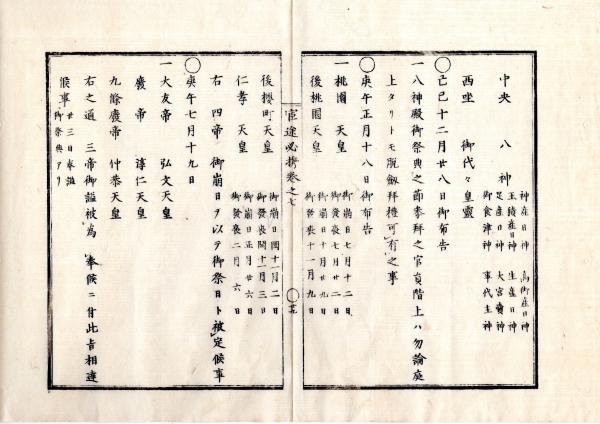 中央　八神
神産日神　高御産日神
玉積産日神　生産日神
足産日神　大宮賣神
御食津神　事代主神
西座　御代々皇靈
〇己巳十二月廿八日御布告
一八神殿御祭典之節参拜之官員階上ハ勿論庭
上タリトモ脱劔拜禮可有之事
〇庚午正月十八日御布告
一桃園　天皇
御崩日七月十二日
御發喪七月廿二日
後桃園　天皇
御崩日十月廿九日
御發喪十一月九日
宦途必携巻之七
〇
後櫻町天皇
御崩日閏十一月二日
御發喪閏十一月三日
仁孝　天皇
御崩日正月廿六日
御發喪二月六日
右　四帝　御崩日ヲ以テ御祭日ト被定候事
〇庚午七月十九日
一大友帝　弘文天皇
廢帝　淳仁天皇
九條廢帝　仲恭天皇
右之通　三帝御謚被為　奉候ニ付此旨相達
候事
廿三日奉謚
御祭典アリ